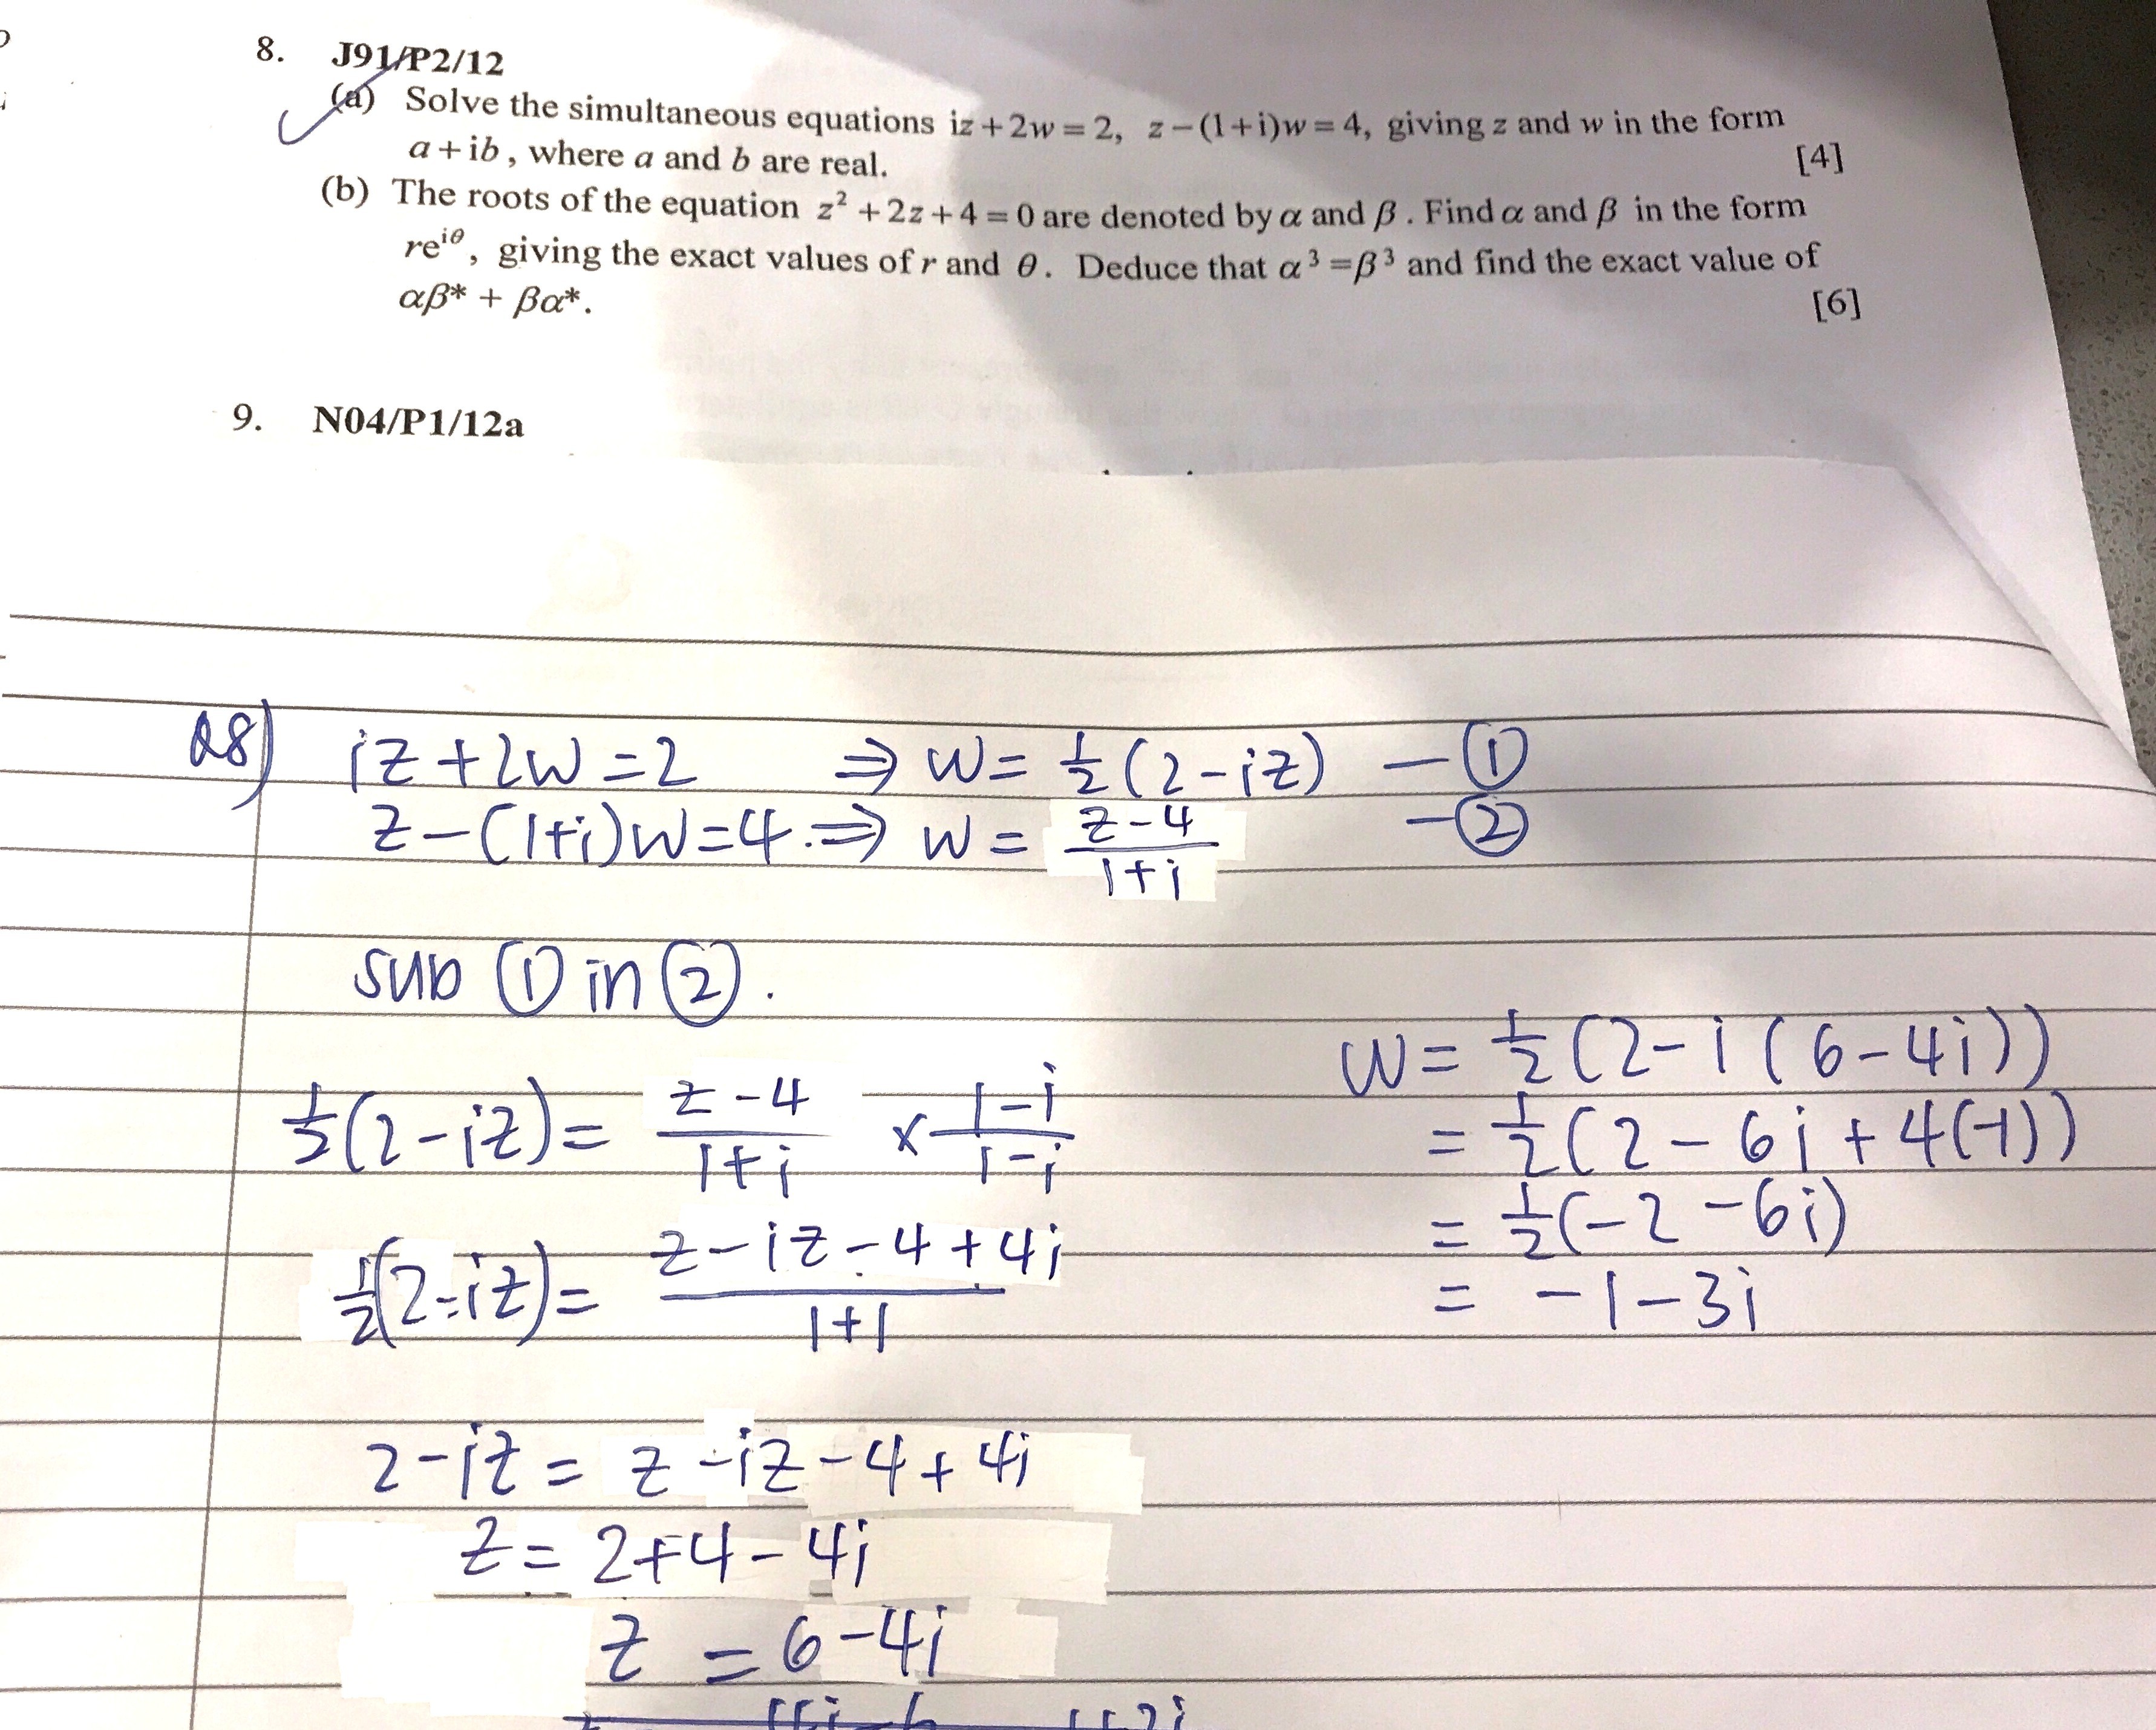 8. J91/P2/12
(a) Solve the simultaneous equations iz + 2w = 2, z − (1+i)w = 4, giving z and w in the form
a + ib, where a and b are real. [4]
(b) The roots of the equation z² + 2z + 4 = 0 are denoted by α and β. Find α and β in the form
re^{iθ}, giving the exact values of r and θ. Deduce that α³ = β³ and find the exact value of
αβ* + βα*. [6]
9. N04/P1/12a
Q8) iz + 2w = 2 ⇒ w = 1/2 (2 − iz) — ①
z − (1+i)w = 4. ⇒ w = (z − 4)/(1 + i) — ②
sub ① in ②.
1/2 (2 − iz) = (z − 4)/(1 + i) × (1 − i)/(1 − i)
1/2 (2 − iz) = (z − iz − 4 + 4i)/(1 + 1)
2 − iz = z − iz − 4 + 4i
z = 2 + 4 − 4i
z = 6 − 4i
w = 1/2 (2 − i (6 − 4i))
= 1/2 (2 − 6i + 4(−1))
= 1/2 (−2 − 6i)
= −1 − 3i